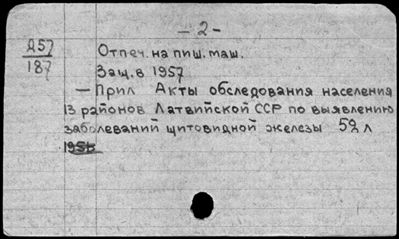 – 2 –
Д57
187
Отпеч. на пиш. маш.
Защ. в 1957
— Прил Акты обследования населения
13 районов Латвийской ССР по выявлению
заболеваний щитовидной железы 59 л